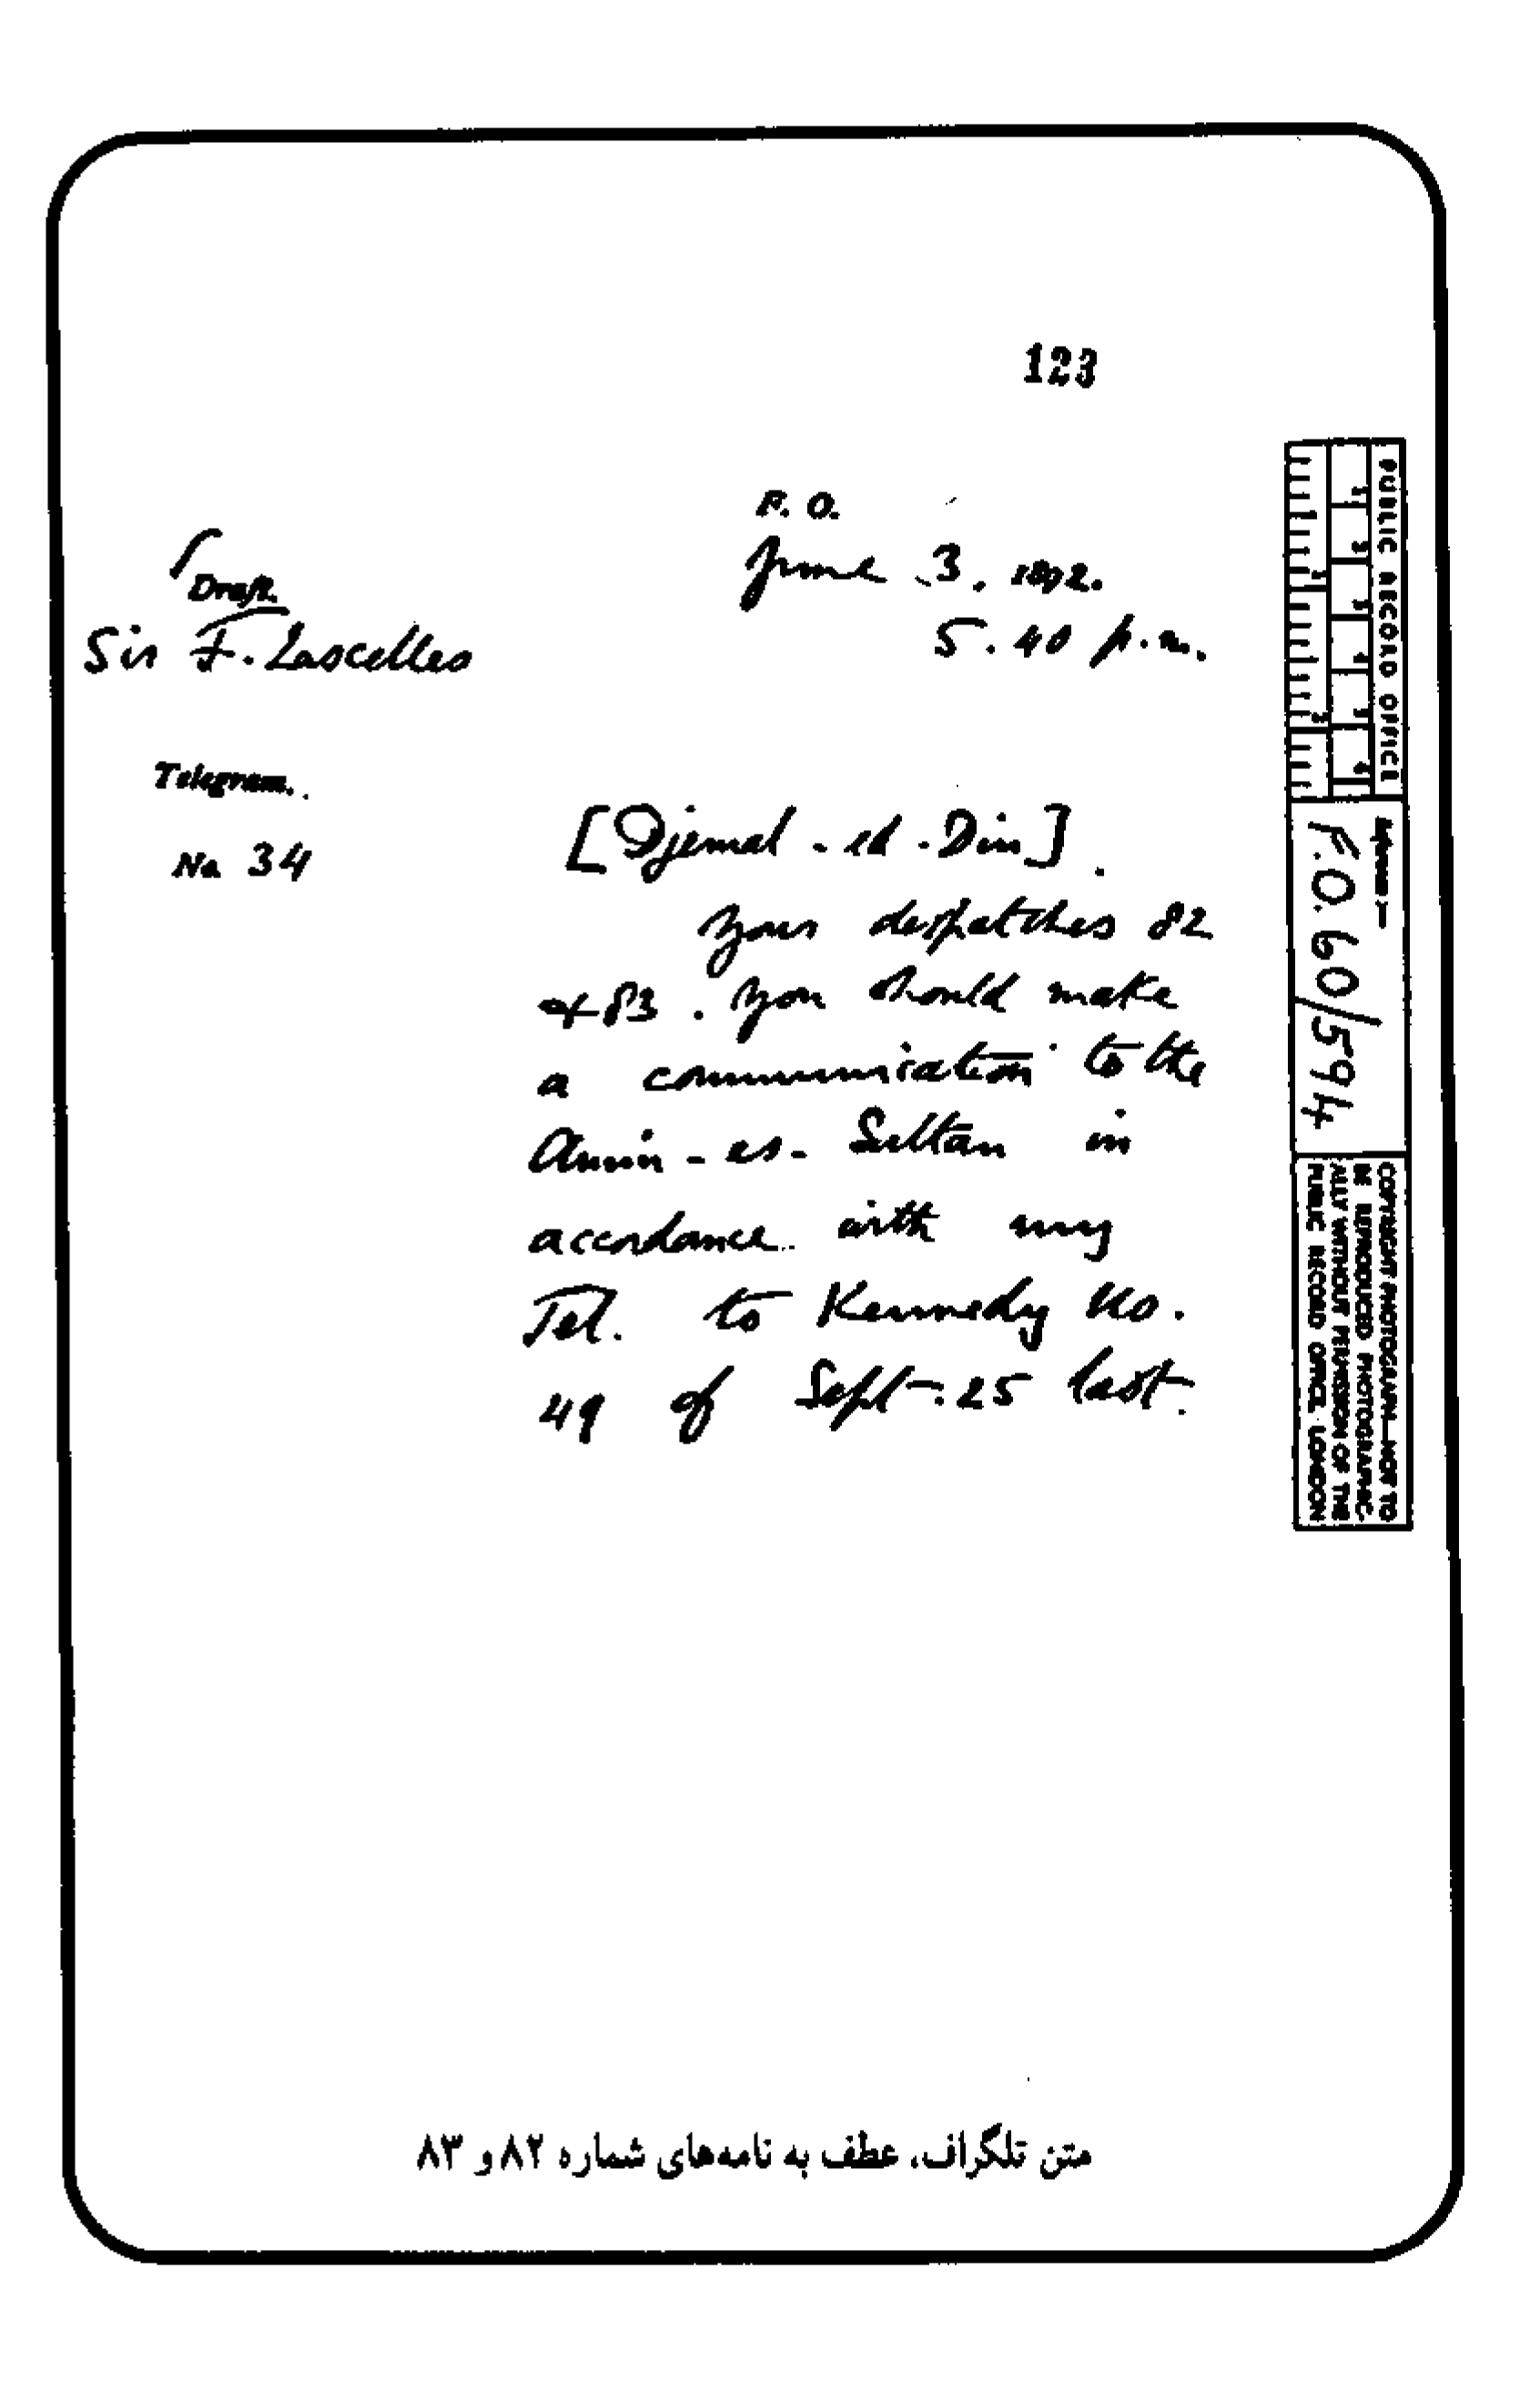 123
F. O.
June 3. 1892.
5.40 p.m.
Draft.
Sir F. Lascelles
Telegram.
No. 34
[Djemal-ed-Din].
Your despatches 82
& 83. You should make
a communication to the
Amin-es-Sultan in
accordance with my
Tel. to Kennedy No.
49 of Sept. 25 last.
PUBLIC RECORD OFFICE
Reference:—
F.O. 60/594
COPYRIGHT PHOTOGRAPH—NOT TO
BE REPRODUCED PHOTOGRAPHIC-
ALLY WITHOUT PERMISSION OF THE
PUBLIC RECORD OFFICE, LONDON
متن تلگراف، عطف به نامه‌های شماره ۸۲ و ۸۳